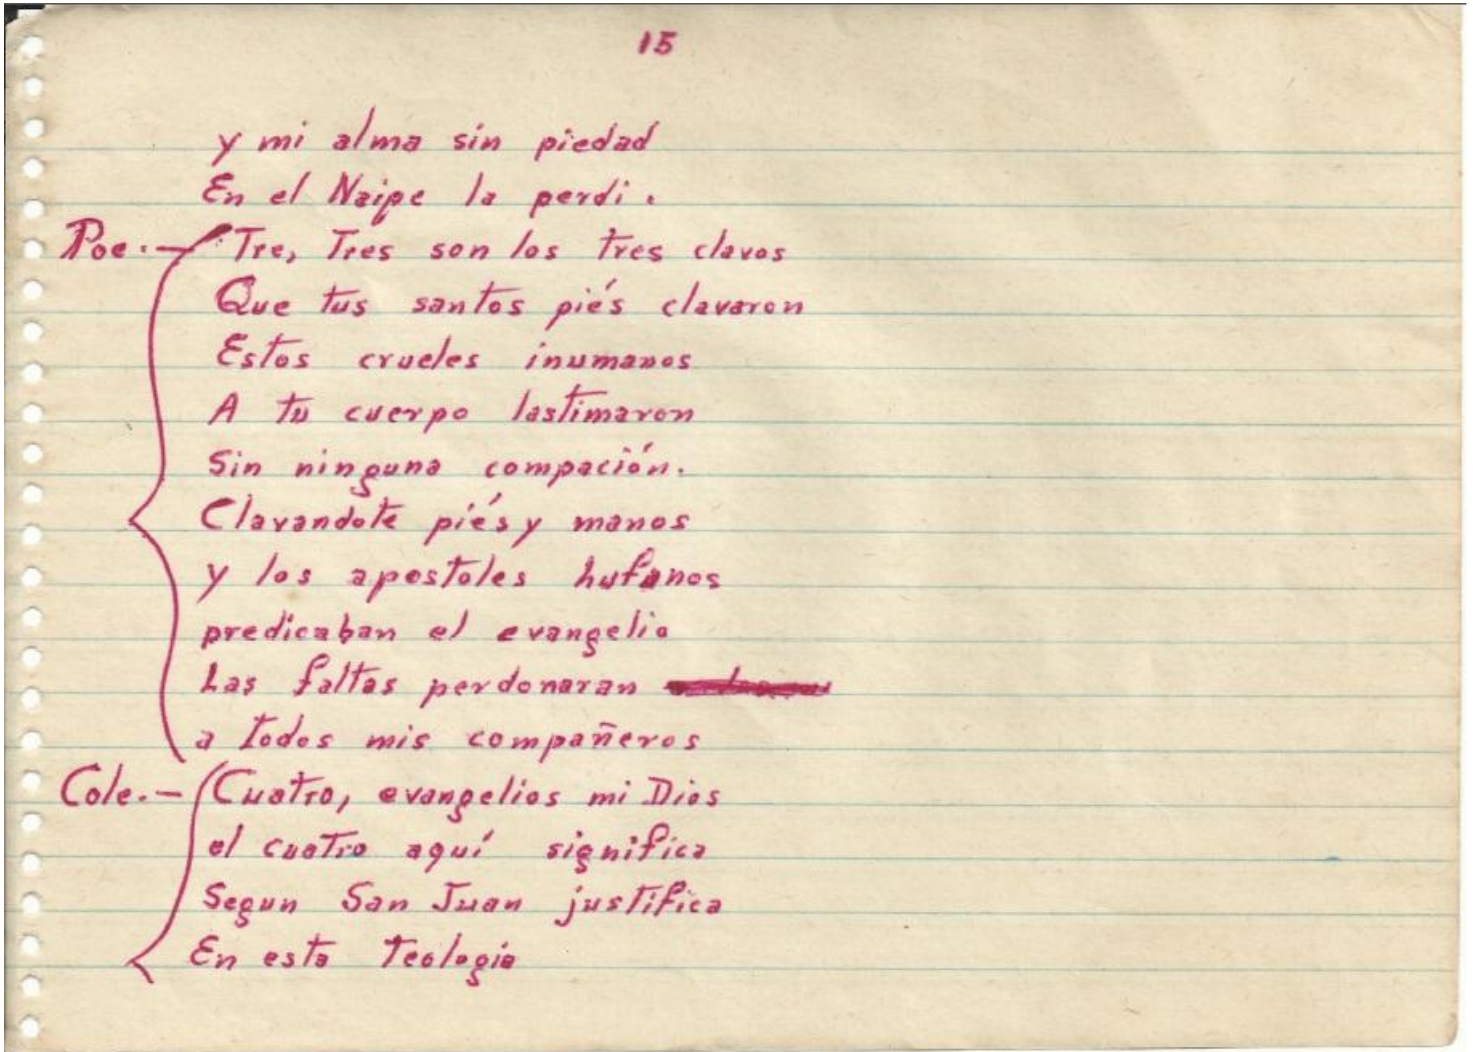 15
y mi alma sin piedad
En el Naipe la perdi.
Poe.- Tre, Tres son los tres clavos
Que tus santos piés clavaron
Estos crueles inumanos
A tu cuerpo lastimaron
Sin ninguna compación.
Clavandote piés y manos
y los apostoles hufanos
predicaban el evangelio
Las faltas perdonaran
a todos mis compañeros
Cole.- Cuatro, evangelios mi Dios
el cuatro aquí significa
Segun San Juan justifica
En esta Teologia